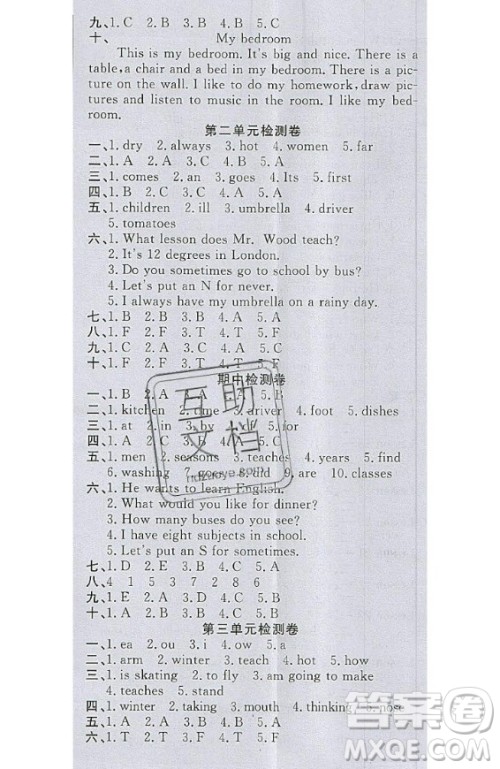 九、1. C　2. A　3. C　4. B　5. A
十、　My bedroom
This is my bedroom. It's big and nice. There is a
table,a chair and a bed in my bedroom. There is a pic-
ture on the wall. I like to do my homework, draw pic-
tures and listen to music in the room. I like my bed-
room.
第二单元检测卷
一、1. dry　2. always　3. hot　4. women　5. far
二、1. A　2. A　3. C　4. B　5. C
三、1. comes　2. an　3. goes　4. Its　5. first
四、1. B　2. B　3. C　4. A　5. A
五、1. children　2. ill　3. umbrella　4. driver
5. tomatoes
六、1. What lesson does Mr. Wood teach?
2. It's 12 degrees in London.
3. Do you sometimes go to school by bus?
4. Let's put an N for never.
5. I always have my umbrella on a rainy day.
七、1. B　2. B　3. A　4. A　5. A
八、1. F　2. F　3. T　4. T　5. F
九、1. C　2. C　3. A　4. B　5. A
十、1. F　2. F　3. F　4. T　5. T
期中检测卷
一、1. B　2. B　3. A　4. A　5. A
二、1. kitchen　2. time　3. driver　4. foot　5. dishes
三、1. at　2. in　3. by　4. for　5. of
四、1. A　2. C　3. C　4. A　5. A
五、1. men　2. seasons　3. teaches　4. years　5. find
6. washing　8. did　9. are　10. classes
六、1. He wants to learn English.
2. What would you like for dinner?
3. How many buses do you see?
4. I have eight subjects in school.
5. Let's put an S for sometimes.
七、1. D　2. E　3. B　4. C　5. A
八、4　1　5　3　7　2　8　6
九、1. E　2. D　3. B　4. C　5. A
十、1. A　2. B　3. A　4. B　5. A
第三单元检测卷
一、1. ea　2. ou　3. i　4. ow　5. a
二、1. arm　2. winter　3. teach　4. hot　5. look
三、1. is skating　2. to fly　3. am going to make
4. teaches　5. stand
四、1. winter　2. taking　3. mouth　4. thinking　5. nose
五、1. A　2. A　3. B　4. A　5. A
六、1. B　2. B　3. A　4. A　5. B
互助
文档
答案圈
MXQE.COM